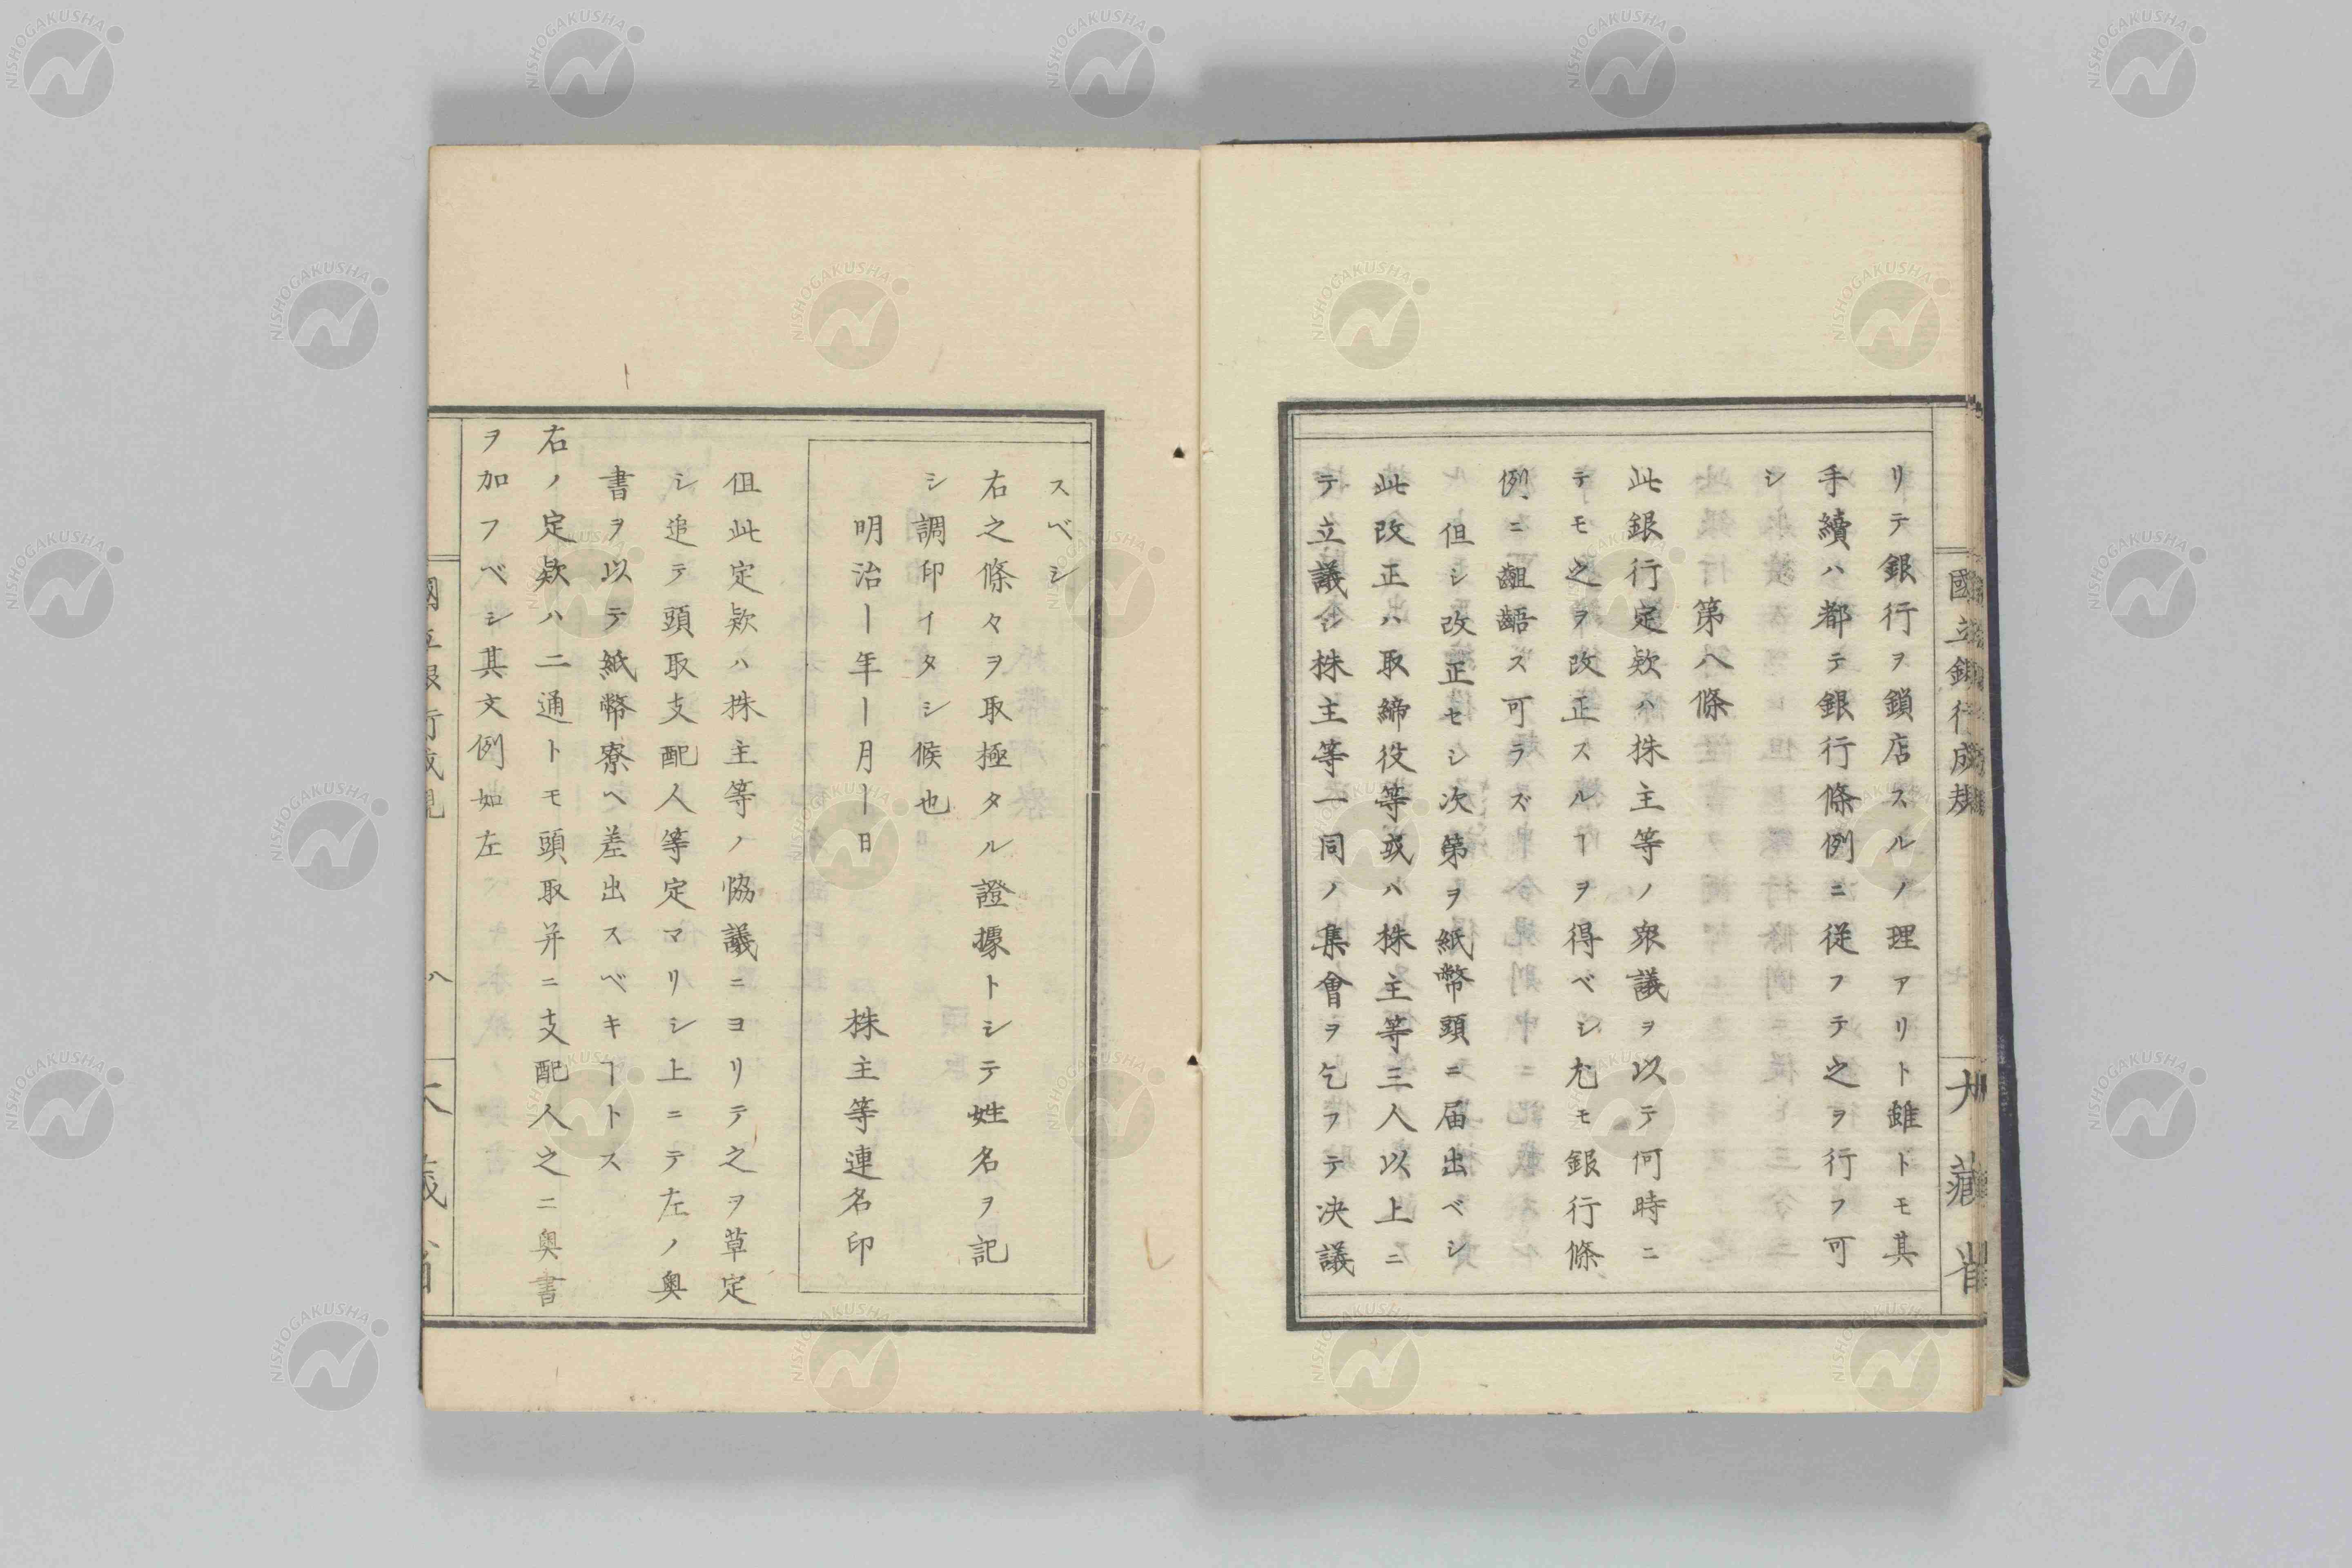 リテ銀行ヲ鎖店スルノ理アリト雖トモ其
手續ハ都テ銀行條例ニ従フテ之ヲ行フ可
シ
第八條
此銀行定欵ハ株主等ノ衆議ヲ以テ何時ニ
テモ之ヲ改正スルヿヲ得ベシ尤モ銀行條
例ニ齟齬ス可ラズ
但シ改正セシ次第ヲ紙幣頭ニ届出ベシ
此改正ハ取締役等或ハ株主等三人以上ニ
テ立議シ株主等一同ノ集會ヲ乞フテ决議
スベシ
右之條々ヲ取極タル證據トシテ姓名ヲ記
シ調印イタシ候也
明治ー年ー月ー日
株主等連名印
伹此定欵ハ株主等ノ恊議ニヨリテ之ヲ草定
シ追テ頭取支配人等定マリシ上ニテ左ノ奥
書ヲ以テ紙幣寮ヘ差出スベキヿトス
右ノ定欵ハ二通トモ頭取并ニ支配人之ニ奥書
ヲ加フベシ其文例如左
八
NISHOGAKUSHA